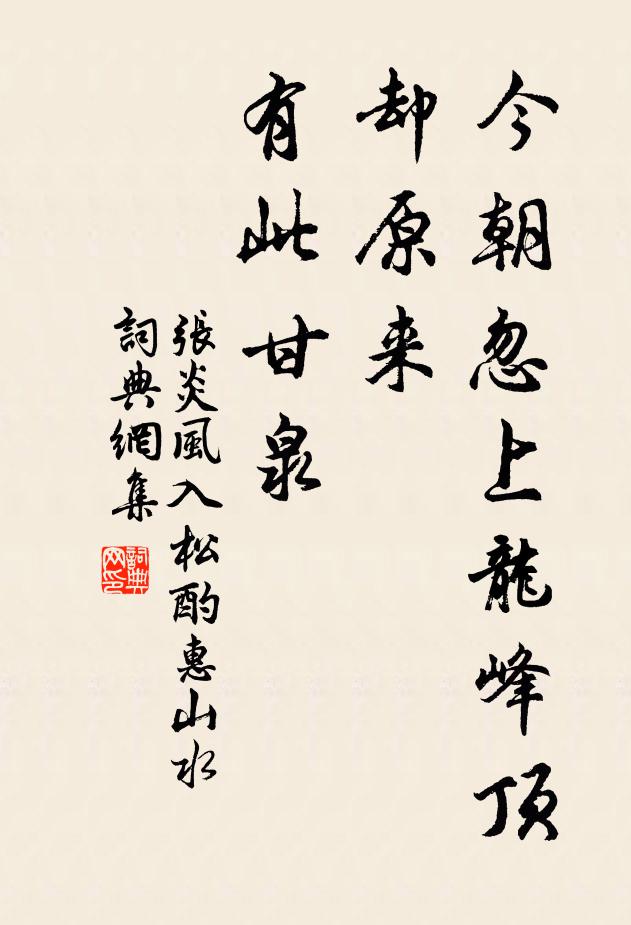 今朝忽上龍峰頂
却原来
有此甘泉
張炎風入松酌惠山水
詞典網集
詞典网印